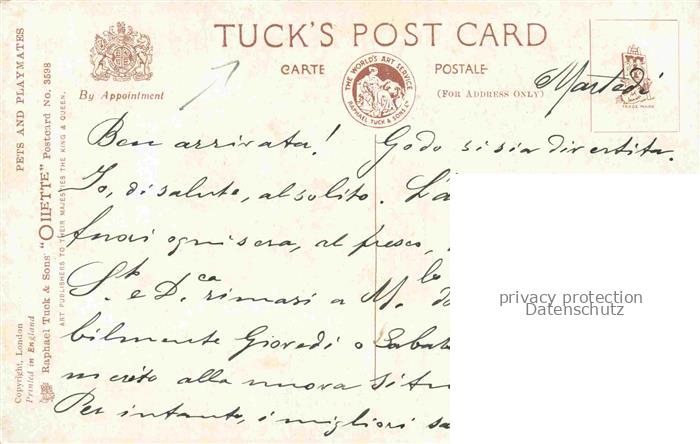 TUCK'S POST CARD
CARTE POSTALE
(FOR ADDRESS ONLY)
By Appointment
THE WORLD'S ART SERVICE
RAPHAEL TUCK & SONS Ld
TRADE MARK
PETS AND PLAYMATES
Raphael Tuck & Sons' "OILETTE" Postcard No. 3598
ART PUBLISHERS TO THEIR MAJESTIES THE KING & QUEEN.
Copyright, London
Printed in England
Martedì
Ben arrivata! Godo si sia divertita.
Io, di salute, al solito. La
fuori ogni sera, al fresco,
S.to e D.ca rimasi a M.lo da
bilmente Giovedì o Sabat
merito alla nuova situ
Per intanto, i migliori sa
privacy protection
Datenschutz